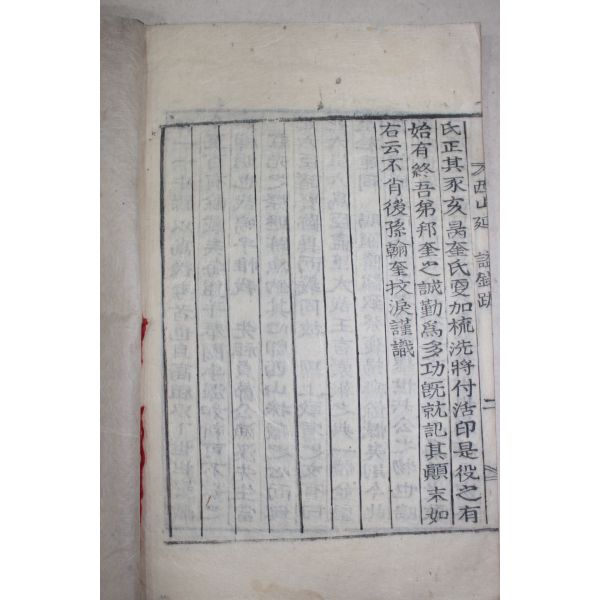 氏正其豕亥昺奎氏更加梳洗將付活印是役之有
始有終吾弟邦奎之誠勤爲多功旣就記其顚末如
右云不肖後孫翰奎抆淚謹識
西山延諡錄跋
二